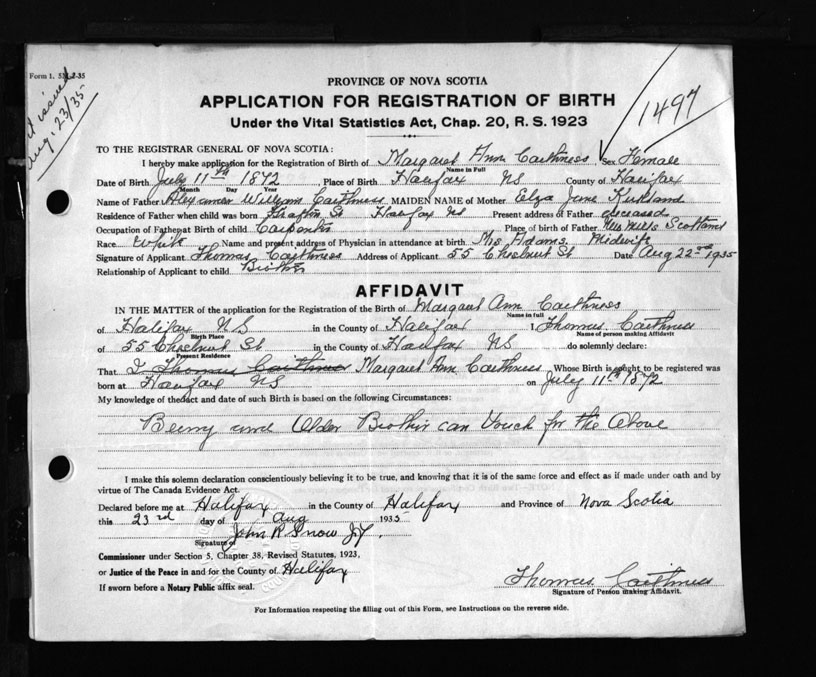 Form 1. 5M-2-35
Aug. 23/35
PROVINCE OF NOVA SCOTIA
1497
APPLICATION FOR REGISTRATION OF BIRTH
Under the Vital Statistics Act, Chap. 20, R. S. 1923
TO THE REGISTRAR GENERAL OF NOVA SCOTIA:
I hereby make application for the Registration of Birth of Margaret Ann Caithness Sex Female
Name in Full
Date of Birth July 11th 1872, Place of Birth Halifax NS County of Halifax
Month Day Year
Name of Father Alexander William Caithness MAIDEN NAME of Mother Eliza Jane Kirkland
Residence of Father when child was born Grafton St Halifax NS Present address of Father deceased
Occupation of Father at Birth of child Carpenter Place of birth of Father Mills Scotland
Race White Name and present address of Physician in attendance at birth Mrs Adams, Midwife
Signature of Applicant Thomas Caithness Address of Applicant 55 Chestnut St Date Aug 22nd 1935
Relationship of Applicant to child Brother
AFFIDAVIT
IN THE MATTER of the application for the Registration of the Birth of Margaret Ann Caithness
Name in full
of Halifax NS in the County of Halifax I, Thomas Caithness
Birth Place Name of person making Affidavit
of 55 Chestnut St in the County of Halifax NS do solemnly declare:
Present Residence
That I Thomas Caithness Margaret Ann Caithness Whose Birth is sought to be registered was
born at Halifax NS on July 11th 1872
My knowledge of the fact and date of such Birth is based on the following Circumstances:
Being and Older Brother can Vouch for the Above
I make this solemn declaration conscientiously believing it to be true, and knowing that it is of the same force and effect as if made under oath and by
virtue of The Canada Evidence Act.
Declared before me at Halifax in the County of Halifax and Province of Nova Scotia
this 23rd day of Aug 1935
John R Snow J.P.
Signature of
Commissioner under Section 5, Chapter 38, Revised Statutes, 1923,
or Justice of the Peace in and for the County of Halifax
If sworn before a Notary Public affix seal.
Thomas Caithness
Signature of Person making Affidavit.
For Information respecting the filling out of this Form, see Instructions on the reverse side.